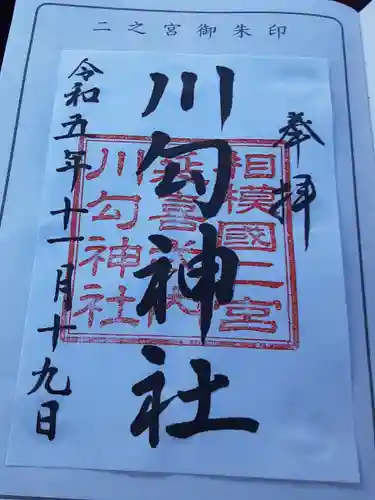 二之宮御朱印
奉拝
川勾神社
令和五年十一月十九日
相模國二宮
延喜式内
川勾神社